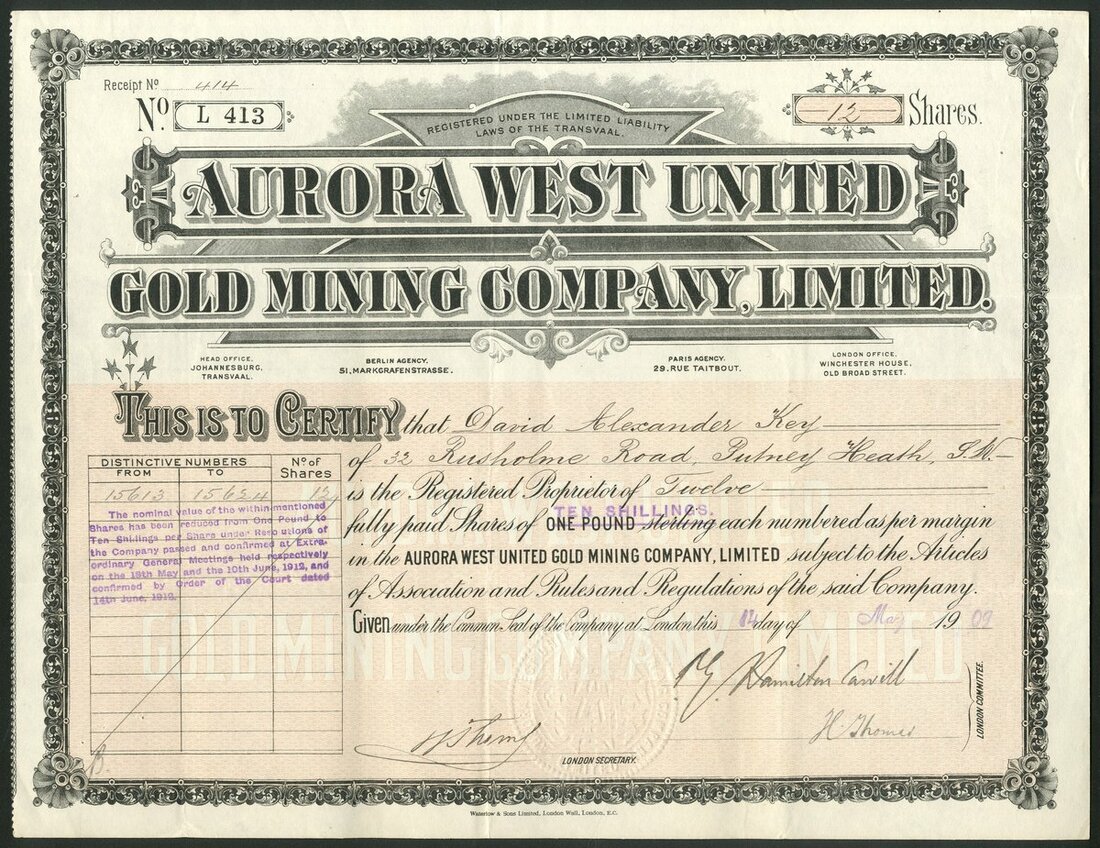 Receipt No 414
No. L 413
12 Shares.
REGISTERED UNDER THE LIMITED LIABILITY
LAWS OF THE TRANSVAAL.
AURORA WEST UNITED
GOLD MINING COMPANY, LIMITED.
HEAD OFFICE,
JOHANNESBURG,
TRANSVAAL.
BERLIN AGENCY.
51, MARKGRAFENSTRASSE.
PARIS AGENCY.
29, RUE TAITBOUT.
LONDON OFFICE,
WINCHESTER HOUSE,
OLD BROAD STREET.
THIS IS TO CERTIFY that David Alexander Key
of 32 Rusholme Road, Putney Heath, S.W.
is the Registered Proprietor of Twelve
TEN SHILLINGS.
fully paid Shares of ONE POUND sterling each numbered as per margin
in the AURORA WEST UNITED GOLD MINING COMPANY, LIMITED subject to the Articles
of Association and Rules and Regulations of the said Company.
Given under the Common Seal of the Company at London this 14 day of May 1909
DISTINCTIVE NUMBERS
FROM TO
No of Shares
15613 15624 12
The nominal value of the within-mentioned
Shares has been reduced from One Pound to
Ten Shillings per Share under Resolutions of
the Company passed and confirmed at Extra-
ordinary General Meetings held respectively
on the 18th May and the 10th June, 1912, and
confirmed by Order of the Court dated
14th June, 1912.
GOLD MINING COMPANY LIMITED
Hamilton
H. Thomas
LONDON COMMITTEE.
LONDON SECRETARY.
Waterlow & Sons Limited, London Wall, London, E.C.